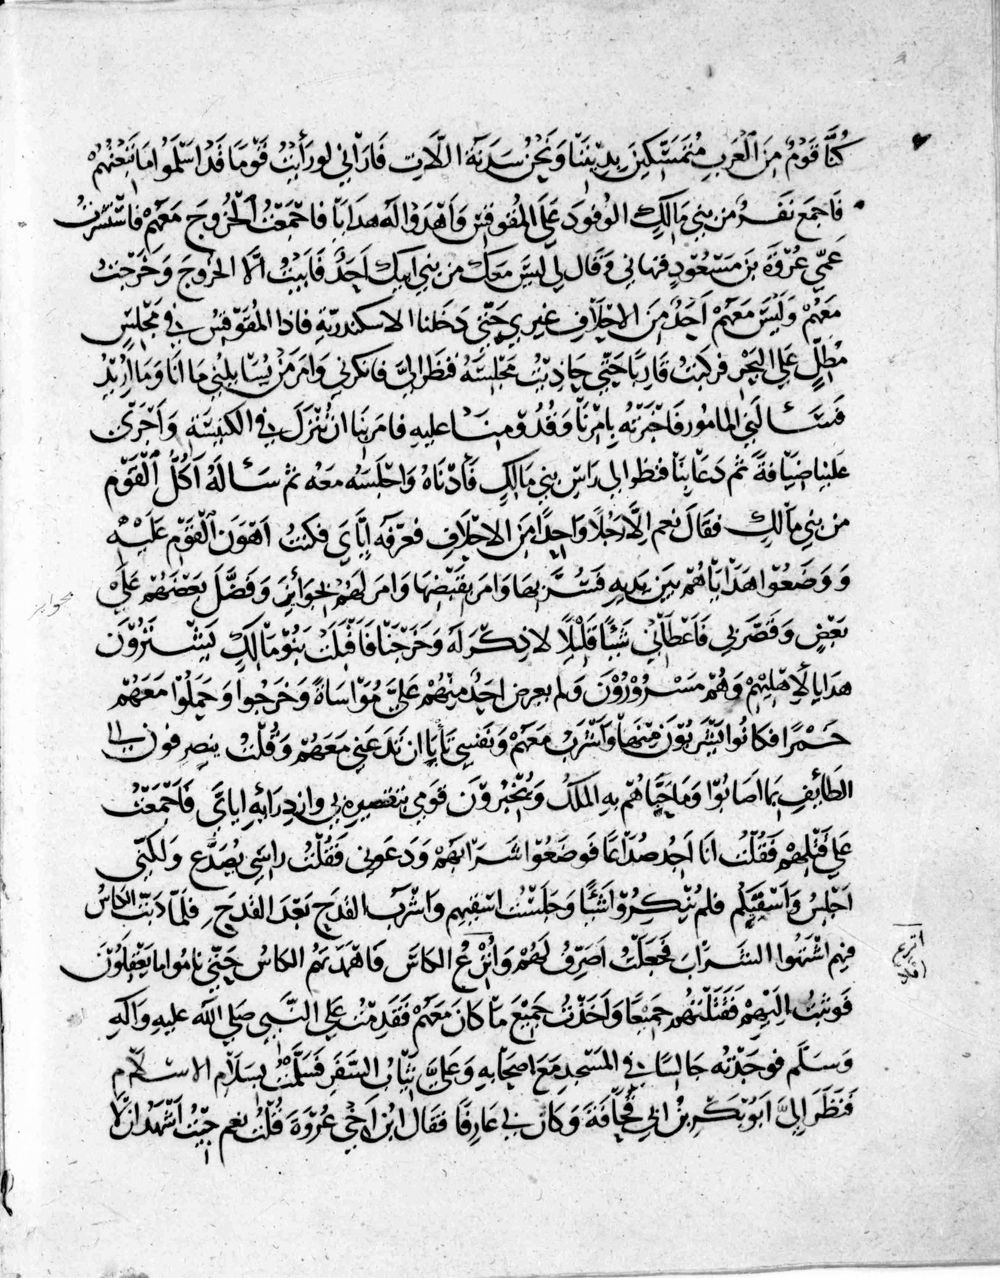 كُنَّا قَوْمٌ مِنَ الْعَرَبِ مُتَمَسِّكِينَ بِدِينِنَا وَنَحْنُ سَدَنَة اللّاتِ فَارَانِي لو رَأَيْتُ قَوْمًا قَدْ اَسْلَمُوا مَا تَبِعْتُهُمْ
فَاجمَعَ نَفَرٌ من بَنِي مَالِكٍ الوفودَ عَلَى المُقَوقِسِ وَاَهْدَوْا لَهُ هدايَا فاجْمَعْتُ الْخُرُوجَ مَعَهُمْ فاسْتَشَرْتُ
عَمِّي عُرْوَةَ بنَ مَسْعُودٍ فنهاني وَقال لِي لَيْسَ مَعَكَ من بني ابيكَ اَحَدٌ فَابَيْتُ الَّا الخروجَ وَخَرَجْتُ
مَعَهُمْ وَلَيْسَ مَعَهُمْ اَحَدٌ مِنَ الاحْلَافِ غيري حَتَّى دَخَلنا الاسكندريّةِ فاذا المُقَوْقِسُ في مَجْلِسٍ
مُطِلٍّ عَلَى البَحْرِ فركبْتُ قَارِبًا حَتَّى حَاذَيْتُ مَجْلِسَهُ فنظر اليَّ فانكرني وَامَرَ مَنْ يُسَائِلُنِي مَا انَا وَمَا اُرِيْدُ
فَسَالَنِي المامُور فَاخْبَرْتُه بِامْرِنَا وَقُدُوْمِنَا عليهِ فامَرَ بِنَا ان نَنْزِلَ في الكنيسَةِ وَاَجْرَى
عَلَينا ضِيَافةً ثم دَعَا بِنَا فنظر الى رَاسِ بني مَالِكٍ فَأَدْنَاهُ وَاجْلَسَهُ معَه ثم سَأَلَهُ اَكُلُّ الْقَوْمِ
من بني مَالِكٍ فقَالَ نعم اِلَّا رَجُلًا وَاحِدًا مِنَ الاحْلَافِ فعَرَّفَه اِيَّايَ فكنتُ اَهْوَنَ الْقَوْمِ عَلَيْهِ
وَوَضَعُوْا هَدَايَاهُمْ بَيْنَ يَدَيهِ فَسُرَّ بِهَا وَامَرَ بِقَبْضِهَا وَامَرَ لَهُمْ بِجَوَائِزَ وَفَضَّلَ بَعْضَهُمْ عَلَى
بَعْضٍ وَقَصَّرَ بِي فَاَعْطَانِي شَيْئًا قَلِيْلًا لا ذِكْرَ لَهُ وَخَرَجْنَا فَاَقْبَلَتْ بَنُوْ مَالِكٍ يَشْتَرُوْنَ
هدايا لِاَهْلِيْهِمْ وَهُمْ مَسْرُوْرُوْنَ وَلم يعرض اَحَدٌ مِنْهُمْ عَلَيَّ مُوَاسَاةً وَخَرَجُوا وَحَمَلُوْا مَعَهُمْ
خَمْرًا فكانُوا يَشْرَبُوْنَ مِنْهَا وَاَشْرَبُ مَعَهُمْ وَنَفْسِي تَأْبَا ان تَدَعَنِي مَعَهُمْ وَقُلْتُ ينصرفون الى
الطَائِفِ بِمَا اصَابُوْا وَمَا حَبَاهُمْ بِهِ المَلِكُ وَيُخْبِرُوْنَ قَومِي بتقصيرِهِ بي وازدِرَائِهِ ايايَ فَاَجْمَعْتُ
عَلى قَتْلِهِمْ فَقُلْتُ انَا اَجِدُ صُدَاعًا فَوَضَعُوْا شَرَابَهُمْ وَدَعَوني فَقُلْتُ رَاسِي يُصَدَّع وَلَكِنِّي
اَجْلِسُ وَاَسْقِيَكُم فلم يُنْكِرُوْا شَيْئًا وَجَلَسْتُ اسْقِيهِم وَاَشْرَبُ القَدَحَ بَعْدَ القَدَحِ فلَمَّا دَبَّت الكَاسُ
فيهِم اشْتَهَوا الشَّرَابَ فَجَعَلْتُ اَصَرِّفُ لَهُمْ وَاُتْرِعُ الكاسَ فَاهْمَدَتْهُم الكاسُ حَتَّى نَامُوا ما يَعْقِلُوْنَ
فَوثبتُ اِلَيْهِمْ فَقَتَلْتُهُم جَمِيْعًا وَاَخَذْتُ جَمِيْعَ مَا كَانَ مَعَهُمْ فَقَدِمْتُ عَلى النَّبِي صَلى اللّه عليهِ وَآلِهِ
وَسَلَّم فوجَدْتُه جَالسًا في المَسْجدِ مَعَ اصحَابِهِ وَعَلَيَّ ثِيَابُ السَّفَرِ فَسَلَّمْتُ بِسَلَامِ الاسْلَامِ
فَنَظَرَ اِلَيَّ اَبُوْ بَكْرِ بنُ اَبي قُحَافَةَ وَكَانَ بي عَارِفًا فقَال ابْنُ اَخي عُرْوَةَ قُلْتُ نعم جِيْتُ اَشْهَدُ انْ لَا
جوايز